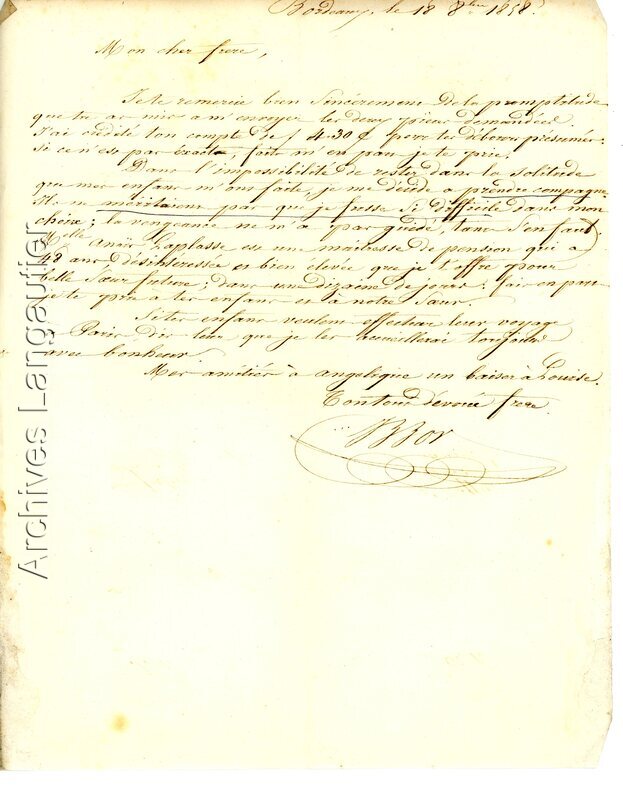 Bordeaux, le 18 8bre 1858.
Mon cher frere,
Je te remercie bien sincèrement de la promptitude
que tu as mis a m'envoyer les deux pièces demandées.
J'ai crédité ton compte de f 4-30 c pour tes débours présumés:
si ce n'est pas exacte, fait m'en part je te prie.
Dans l'impossibilité de rester dans la solitude
que mes enfans m'ont faite, je me décide a prendre compagne
Ils ne méritaient pas que je fusse si difficile dans mon
choix; la vengeance ne m'a pas guidé, tant s'en faut
Melle Anaïs Laplasse est une maitresse de pension qui a
48 ans désintéressée et bien élevée que je t'offre pour
belle Sœur future; dans une dizaine de jours: fais en part
je te prie a tes enfans et à notre Sœur.
Si tes enfans veulent effectuer leur voyage
Paris dis leur que je les accueillerai toujours
avec bonheur.
Mes amitiés à Angelique un baiser à Louise.
Ton tout dévoué frere
Archives Langautier